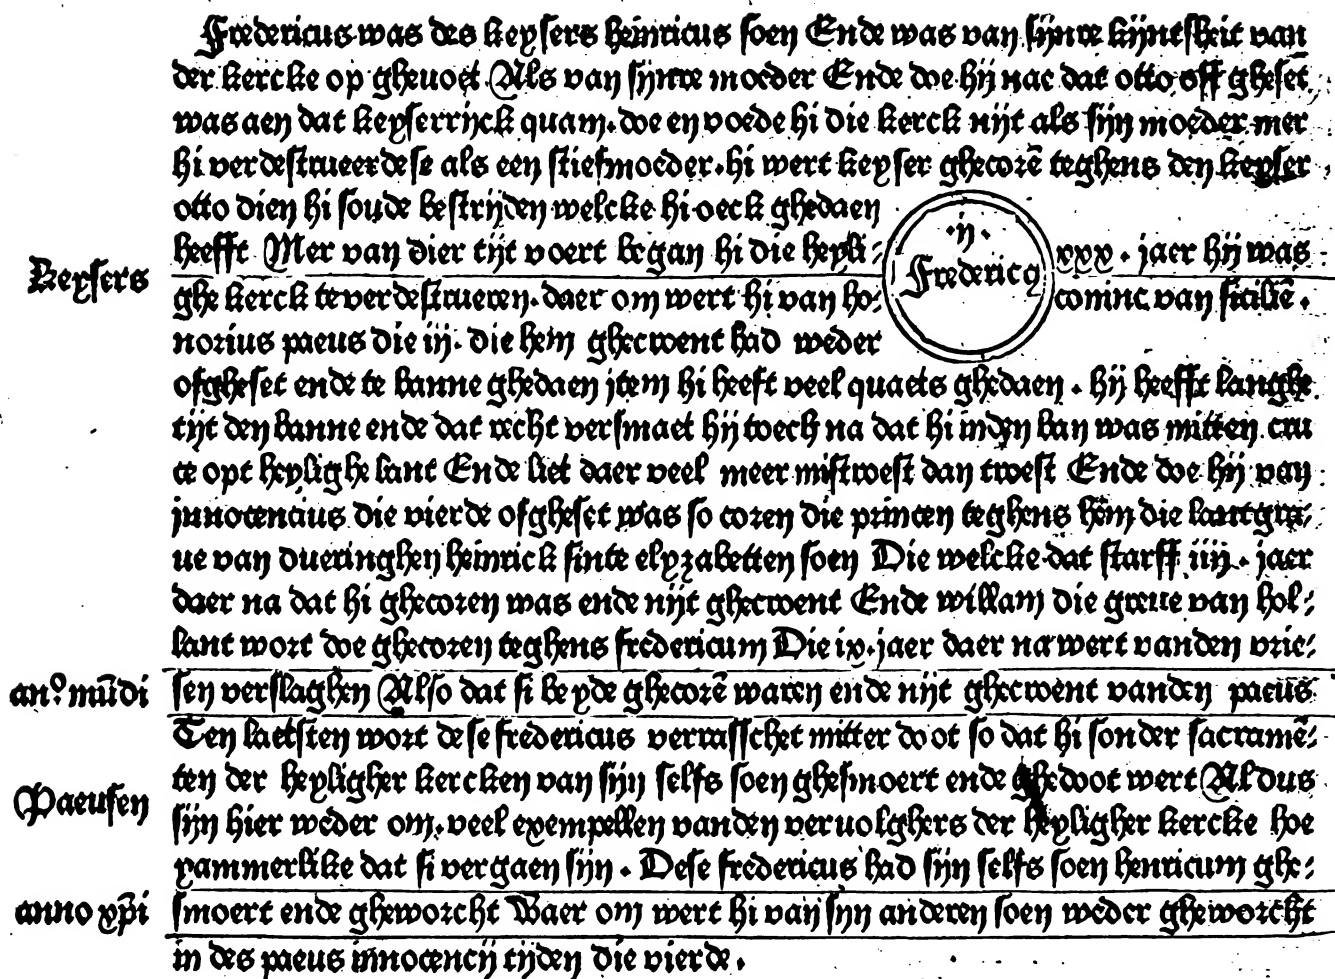 Fredericus was des keysers heinricus soen Ende was van sijnre kijntsheit van
der kercke op gheuoet Als van sijnre moeder Ende doe hij nae dat otto off gheset
was aen dat keyserrijck quam. doe en voede hi die kerck nijt als sijn moeder mer
hi verdestrueerdese als een stiefmoeder. hi wert keyser ghecorē teghens den keyser
otto dien hi soude bestrijden welcke hi oeck ghedaen
heefft Mer van dier tijt voert began hi die heyli-
ghe kerck te verdestrueren. daer om wert hi van ho-
norius paeus die iij. die hem ghecroent had weder
·ij·
Fredericꝯ
xxx. jaer hij was
coninc van sicilië.
Keysers
ofgheset ende te banne ghedaen jtem hi heeft veel quaets ghedaen. hij heefft langhe
tijt den banne ende dat recht versmaet hij toech na dat hi inden ban was mitten cru
ce opt heylighe lant Ende liet daer veel meer mistroest dan troest Ende doe hij van
jnnocencius die vierde ofgheset was so coren die princen teghens hem die lantgra-
ue van dueringhen heinrick sinte elyzabetten soen Die welcke dat starff iiij. jaer
daer na dat hi ghecoren was ende nijt ghecroent Ende willam die greue van hol-
lant wort doe ghecoren teghens fredericum Die ix. jaer daer na wert vanden vrie-
an.º mūdi
sen verslaghen Also dat si beyde ghecorē waren ende nijt ghecroent vanden paeus
Ten laetsten wort dese fredericus verrasschet mitter doot so dat hi sonder sacramē-
ten der heyligher kercken van sijn selfs soen ghesmoert ende ghedoot wert Aldus
Paeusen
sijn hier weder om. veel exempellen vanden veruolghers der heyligher kercke hoe
yammerlike dat si vergaen sijn. Dese fredericus had sijn selfs soen henricum ghe-
anno xp̄i
smoert ende gheworcht Waer om wert hi van sijn anderen soen weder gheworcht
in des paeus innocencij tijden die vierde.